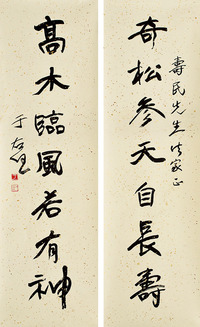 奇松參天自長壽
壽民先生法家正
高木臨風若有神
于右任